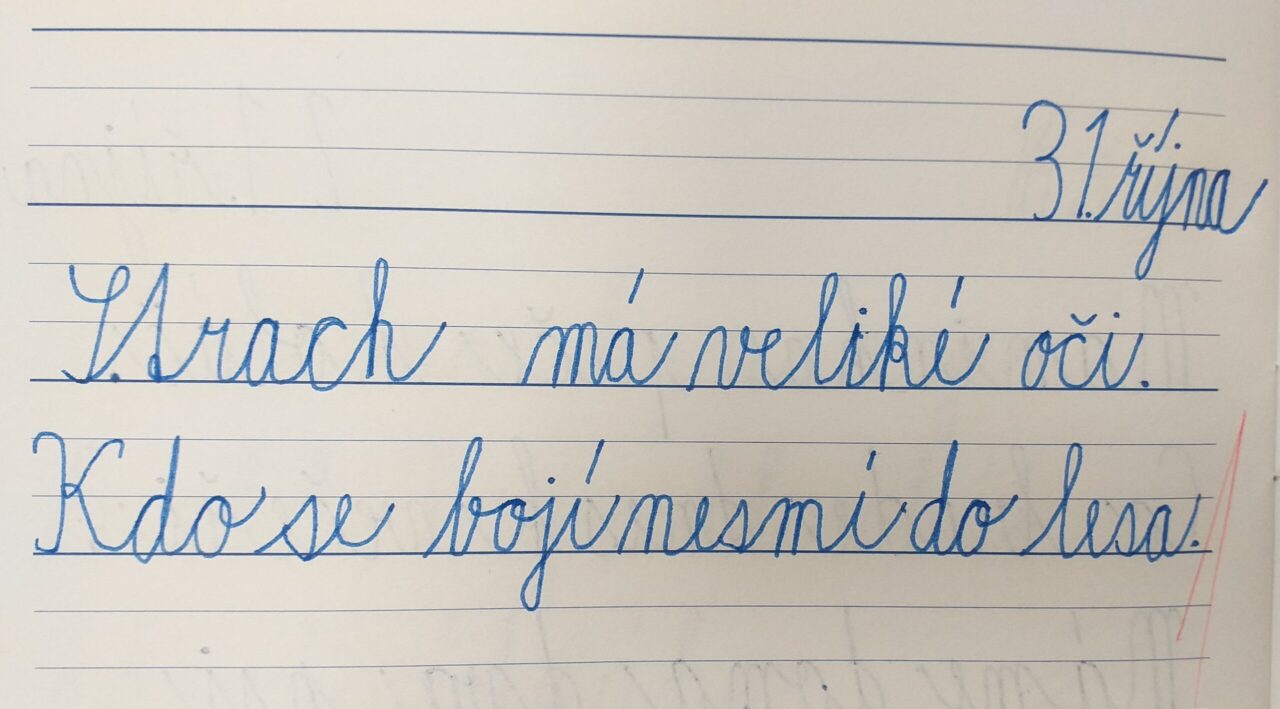 31. října
Strach má veliké oči.
Kdo se bojí nesmí do lesa.